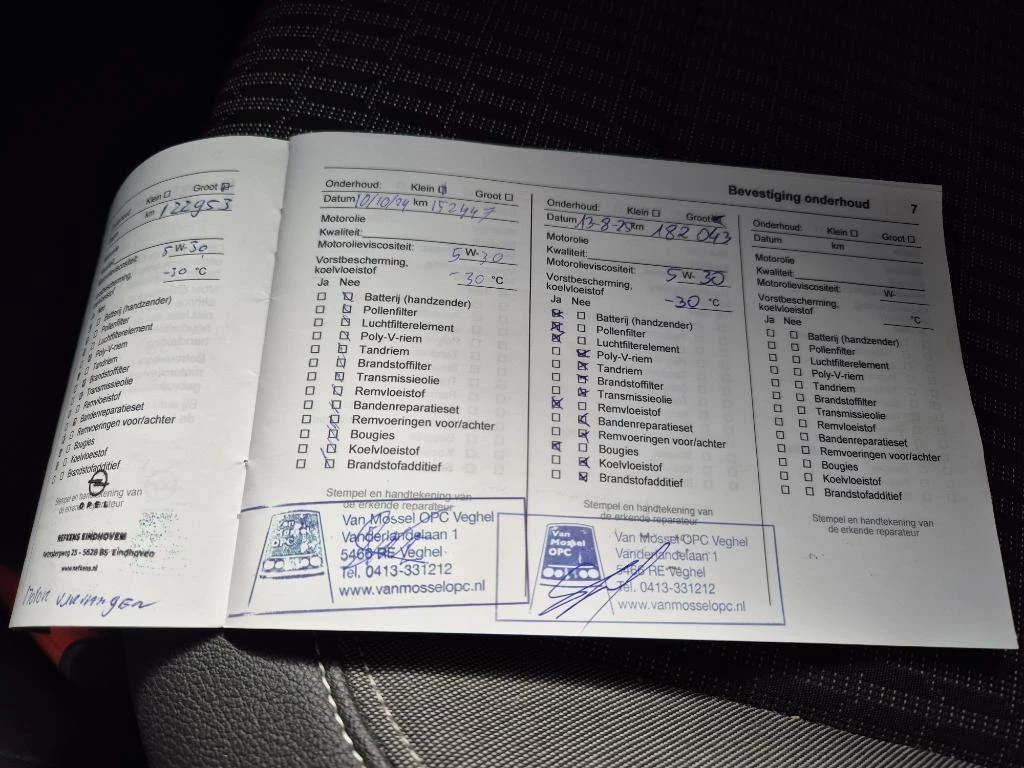 Klein Groot
km 122953
5 W-30
-30 °C
Nee
Batterij (handzender)
Pollenfilter
Luchtfilterelement
Poly-V-riem
Tandriem
Brandstoffilter
Transmissieolie
Remvloeistof
Bandenreparatieset
Remvoeringen voor/achter
Bougies
Koelvloeistof
Brandstofadditief
Stempel en handtekening van
de erkende reparateur
OPEL
NEFKENS EINDHOVEN
5628 BS Eindhoven
www.nefkens.nl
Bevestiging onderhoud 7
Onderhoud: Klein Groot
Datum 10/10/24 km 152447
Motorolie
Kwaliteit:
Motorolieviscositeit: 5 W-30
Vorstbescherming,
koelvloeistof -30 °C
Ja Nee
Batterij (handzender)
Pollenfilter
Luchtfilterelement
Poly-V-riem
Tandriem
Brandstoffilter
Transmissieolie
Remvloeistof
Bandenreparatieset
Remvoeringen voor/achter
Bougies
Koelvloeistof
Brandstofadditief
Stempel en handtekening van
de erkende reparateur
Van Mossel OPC Veghel
Vanderlandelaan 1
5466 RE Veghel
Tel. 0413-331212
www.vanmosselopc.nl
Onderhoud: Klein Groot
Datum 13-8-25 km 182043
Motorolie
Kwaliteit:
Motorolieviscositeit: 5 W-30
Vorstbescherming,
koelvloeistof -30 °C
Ja Nee
Batterij (handzender)
Pollenfilter
Luchtfilterelement
Poly-V-riem
Tandriem
Brandstoffilter
Transmissieolie
Remvloeistof
Bandenreparatieset
Remvoeringen voor/achter
Bougies
Koelvloeistof
Brandstofadditief
Stempel en handtekening van
de erkende reparateur
Van
Mossel
OPC
Van Mossel OPC Veghel
Vanderlandelaan 1
5466 RE Veghel
Tel. 0413-331212
www.vanmosselopc.nl
Onderhoud: Klein Groot
Datum km
Motorolie
Kwaliteit:
Motorolieviscositeit: W-
Vorstbescherming,
koelvloeistof °C
Ja Nee
Batterij (handzender)
Pollenfilter
Luchtfilterelement
Poly-V-riem
Tandriem
Brandstoffilter
Transmissieolie
Remvloeistof
Bandenreparatieset
Remvoeringen voor/achter
Bougies
Koelvloeistof
Brandstofadditief
Stempel en handtekening van
de erkende reparateur